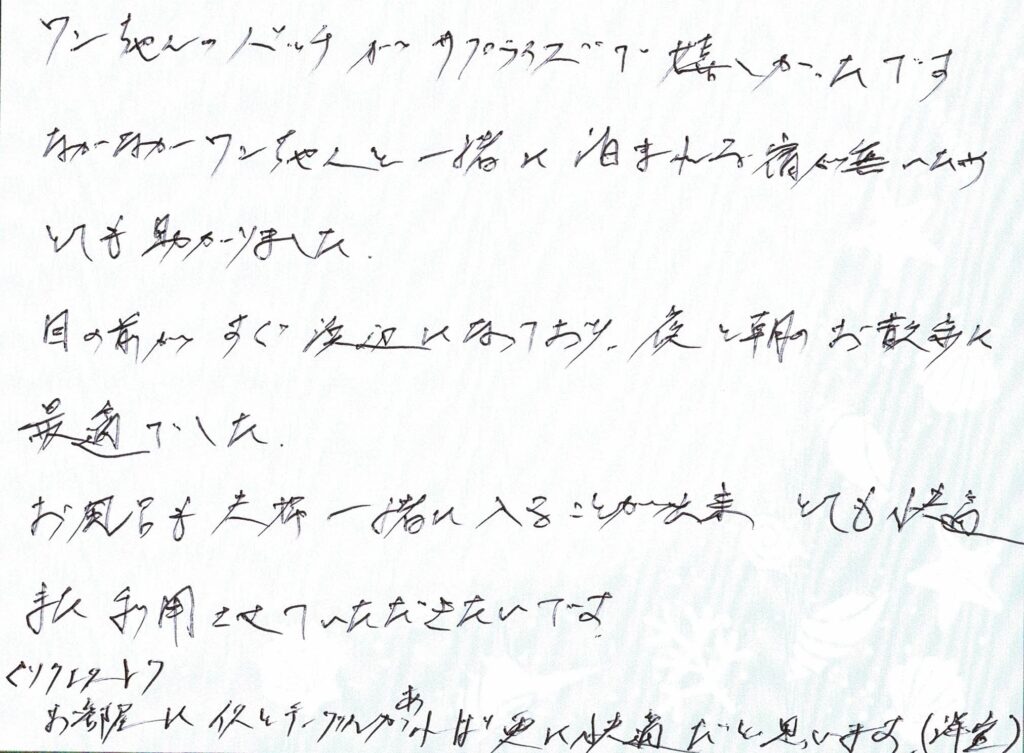 ワンちゃんのバッチがサプライズで嬉しかったです
なかなかワンちゃんと一緒に泊まれる宿が無いため
とても助かりました.
目の前がすぐ浜辺になっており、夜と朝のお散歩に
最適でした.
お風呂も夫婦一緒に入ることが出来 とても快適
また利用させていただきたいです
＜リクエスト＞
お部屋に イスとテーブルがあれば更に快適だと思います(洋室)